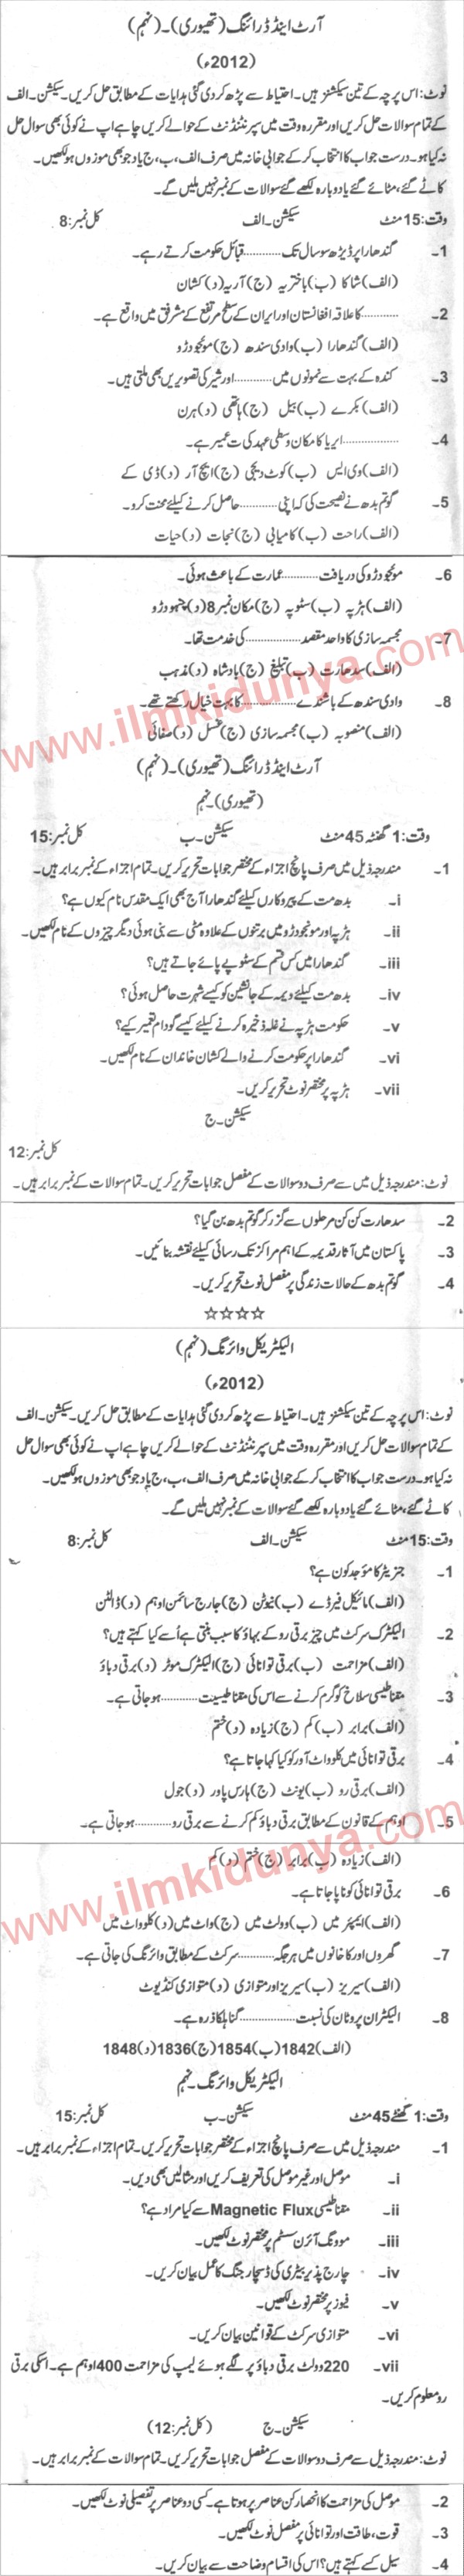 آرٹ اینڈ ڈرائنگ (تھیوری)۔ (نہم)
(2012ء)
نوٹ: اس پرچہ کے تین سیکشنز ہیں۔ احتیاط سے پڑھ کر دی گئی ہدایات کے مطابق حل کریں۔ سیکشن۔ الف
کے تمام سوالات حل کریں اور مقررہ وقت میں سپرنٹنڈنٹ کے حوالے کریں چاہے اپ نے کوئی بھی سوال حل
نہ کیا ہو۔ درست جواب کا انتخاب کر کے جوابی خانہ میں صرف الف، ب، ج یا د جو بھی موزوں ہو لکھیں۔
کاٹے گئے، مٹائے گئے یا دوبارہ لکھے گئے سوالات کے نمبر نہیں ملیں گے۔
وقت: 15 منٹ سیکشن۔ الف کل نمبر: 8
1۔ گندھارا پر ڈیڑھ سو سال تک ........... قبائل حکومت کرتے رہے۔
(الف) شاکا (ب) باختریہ (ج) آریہ (د) کشان
2۔ ........... کا علاقہ افغانستان اور ایران کے سطح مرتفع کے مشرق میں واقع ہے۔
(الف) گندھارا (ب) وادی سندھ (ج) موہنجودڑو
3۔ کندہ کے بہت سے نمونوں میں ........... اور شیر کی تصویریں بھی ملتی ہیں۔
(الف) بکرے (ب) بیل (ج) ہاتھی (د) ہرن
4۔ ................ ایریا کا مکان وسطی عہد کی تعمیر ہے۔
(الف) وی ایس (ب) کوٹ ڈیجی (ج) ایچ آر (د) ڈی کے
5۔ گوتم بدھ نے نصیحت کی کہ اپنی ........... حاصل کرنے کیلئے محنت کرو۔
(الف) راحت (ب) کامیابی (ج) نجات (د) حیات
6۔ موہنجودڑو کی دریافت ........... عمارت کے باعث ہوئی۔
(الف) ہڑپہ (ب) سٹوپہ (ج) مکان نمبر 8 (د) چنہودڑو
7۔ مجسمہ سازی کا واحد مقصد ................ کی خدمت تھا۔
(الف) سدھارت (ب) تبلیغ (ج) بادشاہ (د) مذہب
8۔ وادی سندھ کے باشندے ................ کا بہت خیال رکھتے تھے۔
(الف) منصوبہ (ب) مجسمہ سازی (ج) غسل (د) صفائی
www.ilmkidunya.com
آرٹ اینڈ ڈرائنگ (تھیوری)۔ (نہم)
(تھیوری)۔ نہم
وقت: 1 گھنٹہ 45 منٹ سیکشن۔ ب کل نمبر: 15
1۔ مندرجہ ذیل میں صرف پانچ اجزاء کے مختصر جوابات تحریر کریں۔ تمام اجزاء کے نمبر برابر ہیں۔
i۔ بدھ مت کے پیروکاروں کیلئے گندھارا آج بھی ایک مقدس نام کیوں ہے؟
ii۔ ہڑپہ اور موہنجودڑو میں برتنوں کے علاوہ مٹی سے بنی ہوئی دیگر چیزوں کے نام لکھیں۔
iii۔ گندھارا میں کس قسم کے سٹوپے پائے جاتے ہیں؟
iv۔ بدھ مت کیلئے ویمہ کے جانشین کو کیسے شہرت حاصل ہوئی؟
v۔ حکومت ہڑپہ نے غلہ ذخیرہ کرنے کیلئے کیسے گودام تعمیر کیے؟
vi۔ گندھارا پر حکومت کرنے والے کشان خاندان کے نام لکھیں۔
vii۔ ہڑپہ پر مختصر نوٹ تحریر کریں۔
سیکشن۔ ج
کل نمبر: 12
نوٹ: مندرجہ ذیل میں سے صرف دو سوالات کے مفصل جوابات تحریر کریں۔ تمام سوالات کے نمبر برابر ہیں۔
2۔ سدھارت کن کن مرحلوں سے گزر کر گوتم بدھ بن گیا؟
3۔ پاکستان میں آثار قدیمہ کے اہم مراکز تک رسائی کیلئے نقشہ بنائیں۔
4۔ گوتم بدھ کے حالات زندگی پر مفصل نوٹ تحریر کریں۔
☆☆☆☆
الیکٹریکل وائرنگ (نہم)
(2012ء)
نوٹ: اس پرچہ کے تین سیکشنز ہیں۔ احتیاط سے پڑھ کر دی گئی ہدایات کے مطابق حل کریں۔ سیکشن۔ الف
کے تمام سوالات حل کریں اور مقررہ وقت میں سپرنٹنڈنٹ کے حوالے کریں چاہے اپ نے کوئی بھی سوال حل
نہ کیا ہو۔ درست جواب کا انتخاب کر کے جوابی خانہ میں صرف الف، ب، ج یا د جو بھی موزوں ہو لکھیں۔
کاٹے گئے، مٹائے گئے یا دوبارہ لکھے گئے سوالات کے نمبر نہیں ملیں گے۔
وقت: 15 منٹ سیکشن۔ الف کل نمبر: 8
1۔ جنریٹر کا موجد کون ہے؟
(الف) مائیکل فیرڈے (ب) نیوٹن (ج) جارج سائمن اوہم (د) ڈالٹن
2۔ الیکٹرک سرکٹ میں چیز برقی رو کے بہاؤ کا سبب بنتی ہے اُسے کیا کہتے ہیں؟
(الف) مزاحمت (ب) برقی توانائی (ج) الیکٹرک موٹر (د) برقی دباؤ
3۔ مقناطیسی سلاخ کو گرم کرنے سے اس کی مقناطیسیت ........... ہو جاتی ہے۔
(الف) برابر (ب) کم (ج) زیادہ (د) ختم
4۔ برقی توانائی میں کلو واٹ آور کو کیا کہا جاتا ہے؟
(الف) برقی رو (ب) یونٹ (ج) ہارس پاور (د) جول
5۔ اوہم کے قانون کے مطابق برقی دباؤ کم کرنے سے برقی رو ........... ہو جاتی ہے۔
(الف) زیادہ (ب) برابر (ج) ختم (د) کم
www.ilmkidunya.com
6۔ برقی توانائی کو ناپا جاتا ہے۔
(الف) ایمپئر میں (ب) وولٹ میں (ج) واٹ میں (د) کلو واٹ میں
7۔ گھروں اور کارخانوں میں ہر جگہ ........... سرکٹ کے مطابق وائرنگ کی جاتی ہے۔
(الف) سیریز (ب) سیریز اور متوازی (د) متوازی کنڈیوٹ
8۔ الیکٹران پروٹان کی نسبت ................ گنا ہلکا ذرہ ہے۔
(الف) 1842 (ب) 1854 (ج) 1836 (د) 1848
الیکٹریکل وائرنگ۔ نہم
وقت: 1 گھنٹے 45 منٹ سیکشن۔ ب کل نمبر: 15
1۔ مندرجہ ذیل میں سے صرف پانچ اجزاء کے مختصر جوابات تحریر کریں۔ تمام اجزاء کے نمبر برابر ہیں۔
i۔ موصل اور غیر موصل کی تعریف کریں اور مثالیں بھی دیں۔
ii۔ مقناطیسی Magnetic Flux سے کیا مراد ہے؟
iii۔ موونگ آئرن سسٹم پر مختصر نوٹ لکھیں۔
iv۔ چارج پذیر بیٹری کی ڈسچارجنگ کا عمل بیان کریں۔
v۔ فیوز پر مختصر نوٹ لکھیں۔
vi۔ متوازی سرکٹ کے قوانین بیان کریں۔
vii۔ 220 وولٹ برقی دباؤ پر لگے ہوئے لیمپ کی مزاحمت 400 اوہم ہے۔ اسکی برقی
رو معلوم کریں۔
سیکشن۔ ج (کل نمبر: 12)
نوٹ: مندرجہ ذیل میں سے صرف دو سوالات کے مفصل جوابات تحریر کریں۔ تمام سوالات کے نمبر برابر ہیں۔
2۔ موصل کی مزاحمت کا انحصار کن عناصر پر ہوتا ہے۔ کسی دو عناصر پر تفصیلی نوٹ لکھیں۔
3۔ قوت، طاقت اور توانائی پر مفصل نوٹ لکھیں۔
4۔ سیل کسے کہتے ہیں؟ اس کی اقسام وضاحت سے بیان کریں۔